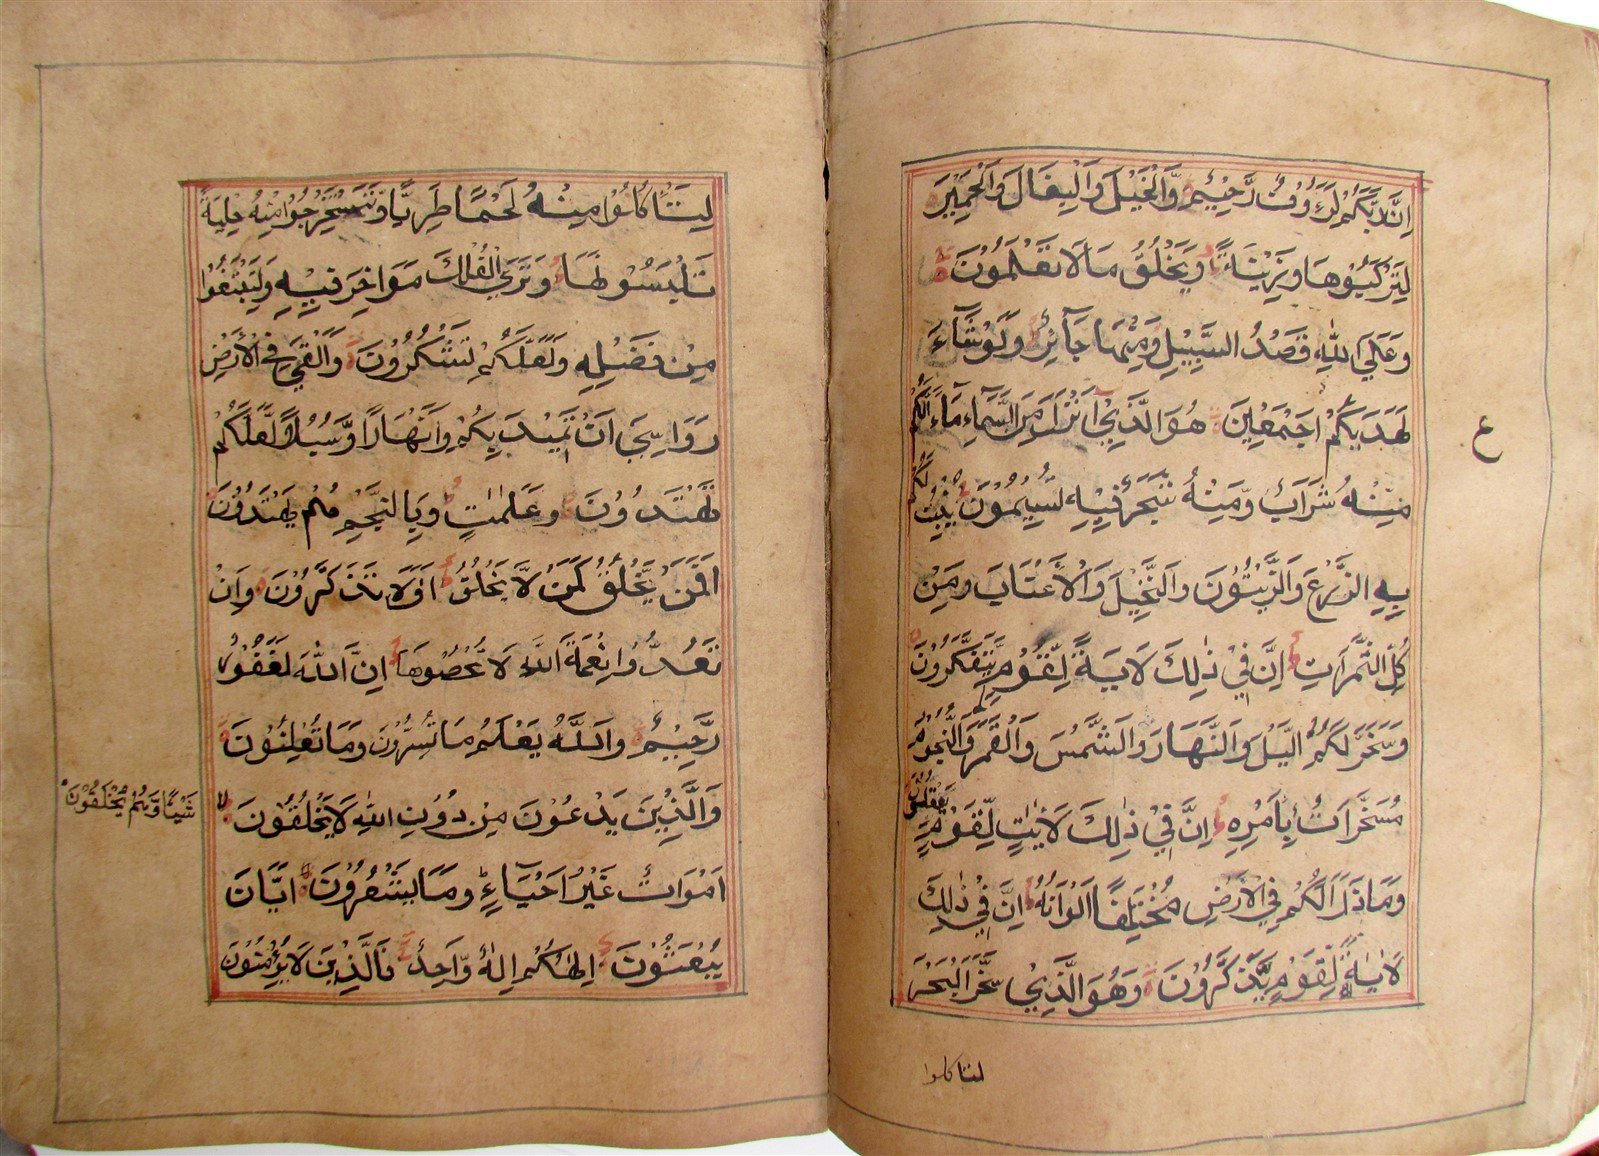 اِنَّ رَبَّكُمْ لَرَؤُفٌ رَّحِيْمٌ وَّالْخَيْلَ وَالْبِغَالَ وَالْحَمِيْرَ
لِتَرْكَبُوْهَا وَزِيْنَةً وَيَخْلُقُ مَا لَا تَعْلَمُوْنَ
وَعَلَى اللّٰهِ قَصْدُ السَّبِيْلِ وَمِنْهَا جَآئِرٌ وَلَوْ شَآءَ
لَهَدٰىكُمْ اَجْمَعِيْنَ هُوَ الَّذِيْ اَنْزَلَ مِنَ السَّمَآءِ مَآءً لَّكُمْ
ع
مِّنْهُ شَرَابٌ وَّمِنْهُ شَجَرٌ فِيْهِ تُسِيْمُوْنَ يُنْبِتُ لَكُمْ
بِهِ الزَّرْعَ وَالزَّيْتُوْنَ وَالنَّخِيْلَ وَالْاَعْنَابَ وَمِنْ
كُلِّ الثَّمَرَاتِ اِنَّ فِيْ ذٰلِكَ لَاٰيَةً لِّقَوْمٍ يَّتَفَكَّرُوْنَ
وَسَخَّرَ لَكُمُ الَّيْلَ وَالنَّهَارَ وَالشَّمْسَ وَالْقَمَرَ وَالنُّجُوْمُ
مُسَخَّرَاتٌ بِاَمْرِهٖ اِنَّ فِيْ ذٰلِكَ لَاٰيٰتٍ لِّقَوْمٍ يَّعْقِلُوْنَ
وَمَا ذَرَاَ لَكُمْ فِي الْاَرْضِ مُخْتَلِفًا اَلْوَانُهٗ اِنَّ فِيْ ذٰلِكَ
لَاٰيَةً لِّقَوْمٍ يَّذَّكَّرُوْنَ وَهُوَ الَّذِيْ سَخَّرَ الْبَحْرَ
لتاكلوا
لِتَاْكُلُوْا مِنْهُ لَحْمًا طَرِيًّا وَّتَسْتَخْرِجُوْا مِنْهُ حِلْيَةً
تَلْبَسُوْنَهَا وَتَرَى الْفُلْكَ مَوَاخِرَ فِيْهِ وَلِتَبْتَغُوْا
مِنْ فَضْلِهٖ وَلَعَلَّكُمْ تَشْكُرُوْنَ وَاَلْقٰى فِي الْاَرْضِ
رَوَاسِيَ اَنْ تَمِيْدَ بِكُمْ وَاَنْهَارًا وَّسُبُلًا لَّعَلَّكُمْ
تَهْتَدُوْنَ وَعَلٰمٰتٍ وَبِالنَّجْمِ هُمْ يَهْتَدُوْنَ
اَفَمَنْ يَّخْلُقُ كَمَنْ لَّا يَخْلُقُ اَفَلَا تَذَكَّرُوْنَ وَاِنْ
تَعُدُّوْا نِعْمَةَ اللّٰهِ لَا تُحْصُوْهَا اِنَّ اللّٰهَ لَغَفُوْرٌ
رَّحِيْمٌ وَاللّٰهُ يَعْلَمُ مَا تُسِرُّوْنَ وَمَا تُعْلِنُوْنَ
وَالَّذِيْنَ يَدْعُوْنَ مِنْ دُوْنِ اللّٰهِ لَا يَخْلُقُوْنَ
شَيْئًا وَّهُمْ يُخْلَقُوْنَ
اَمْوَاتٌ غَيْرُ اَحْيَاءٍ وَمَا يَشْعُرُوْنَ اَيَّانَ
يُبْعَثُوْنَ اِلٰهُكُمْ اِلٰهٌ وَّاحِدٌ فَالَّذِيْنَ لَا يُؤْمِنُوْنَ